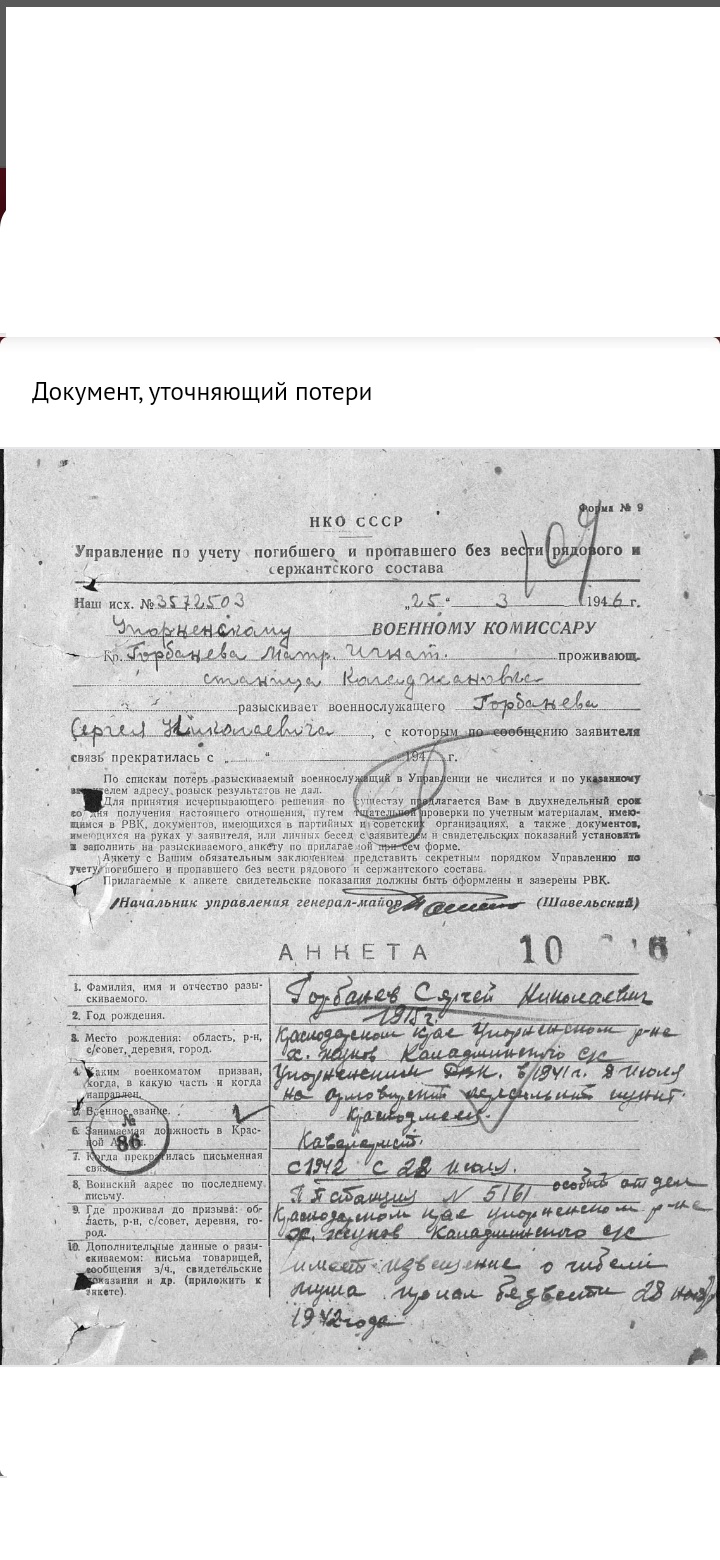 Документ, уточняющий потери
Форма № 9
109
НКО СССР
Управление по учету погибшего и пропавшего без вести рядового и
сержантского состава
Наш исх. № 3572503 „25" 3 1946 г.
Упорненскому ВОЕННОМУ КОМИССАРУ
Гр. Горбанева Матр. Игнат. проживающ.
станица
разыскивает военнослужащего Горбанева
Сергея Николаевича, с которым по сообщению заявителя
связь прекратилась с „ " 194 г.
По спискам потерь разыскиваемый военнослужащий в Управлении не числится и по указанному
заявителем адресу розыск результатов не дал.
Для принятия исчерпывающего решения по существу предлагается Вам в двухнедельный срок
со дня получения настоящего отношения, путем тщательной проверки по учетным материалам, имею-
щимся в РВК, документов, имеющихся в партийных и советских организациях, а также документов,
имеющихся на руках у заявителя, или личных бесед с заявителем и свидетельских показаний установить
и заполнить на разыскиваемого анкету по прилагаемой при сем форме.
Анкету с Вашим обязательным заключением представить секретным порядком Управлению по
учету погибшего и пропавшего без вести рядового и сержантского состава.
Прилагаемые к анкете свидетельские показания должны быть оформлены и заверены РВК.
Начальник управления генерал-майор (Шавельский)
АНКЕТА 10
1. Фамилия, имя и отчество разы-
скиваемого.
Горбанев Сергей Николаевич
2. Год рождения.
1915 г.
3. Место рождения: область, р-н,
с/совет, деревня, город.
Краснодарском крае Упорненском р-не
х. с/с
4. Каким военкоматом призван,
когда, в какую часть и когда
направлен.
Упорненским РВК. в 1941 г. 8 июля
на пункт.
5. Военное звание.
Красноармеец.
6. Занимаемая должность в Крас-
ной Армии.
Кавалерист.
7. Когда прекратилась письменная
связь.
с 1942 с 28 июля.
8. Воинский адрес по последнему
письму.
станция N 5161 особый отдел
9. Где проживал до призыва: об-
ласть, р-н, с/совет, деревня, го-
род.
Краснодарском крае упорненском р-не
х. с/с
10. Дополнительные данные о разы-
скиваемом: письма товарищей,
сообщения з/ч., свидетельские
показания и др. (приложить к
анкете).
имеет извещение о гибели
мужа пропал безвести 28
1942 года
№
86